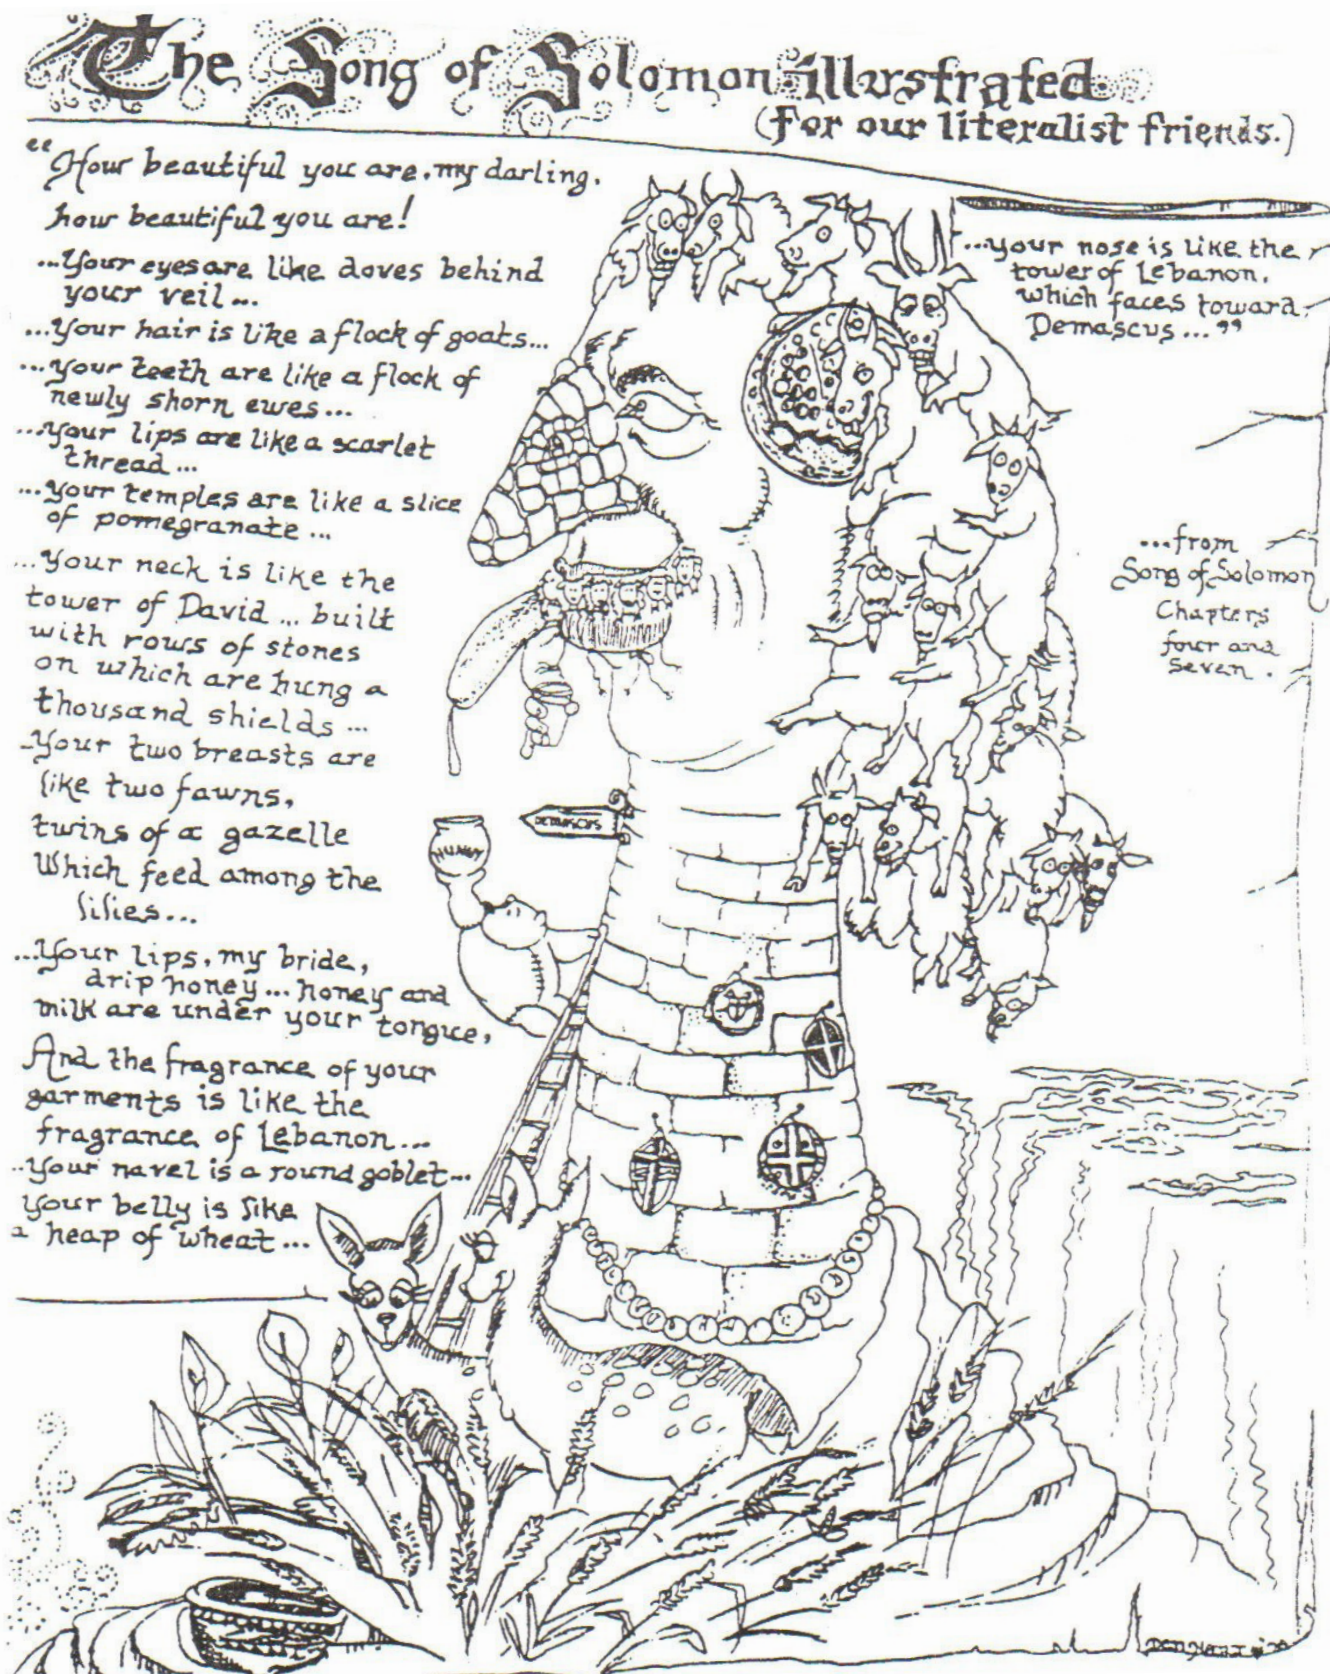 The Song of Solomon illustrated.
(for our literalist friends.)
"How beautiful you are, my darling,
how beautiful you are!
...Your eyes are like doves behind
your veil...
...Your hair is like a flock of goats...
...your teeth are like a flock of
newly shorn ewes...
...Your lips are like a scarlet
thread...
...your temples are like a slice
of pomegranate...
...Your neck is like the
tower of David... built
with rows of stones
on which are hung a
thousand shields...
...Your two breasts are
like two fawns,
twins of a gazelle
Which feed among the
lilies...
...Your lips, my bride,
drip honey... honey and
milk are under your tongue,
And the fragrance of your
garments is like the
fragrance of Lebanon...
...Your navel is a round goblet...
your belly is like
a heap of wheat...
...your nose is like the
tower of Lebanon,
which faces toward
Demascus..."
...from
Song of Solomon
Chapters
four and
seven.
DEMASCUS
HUNNY